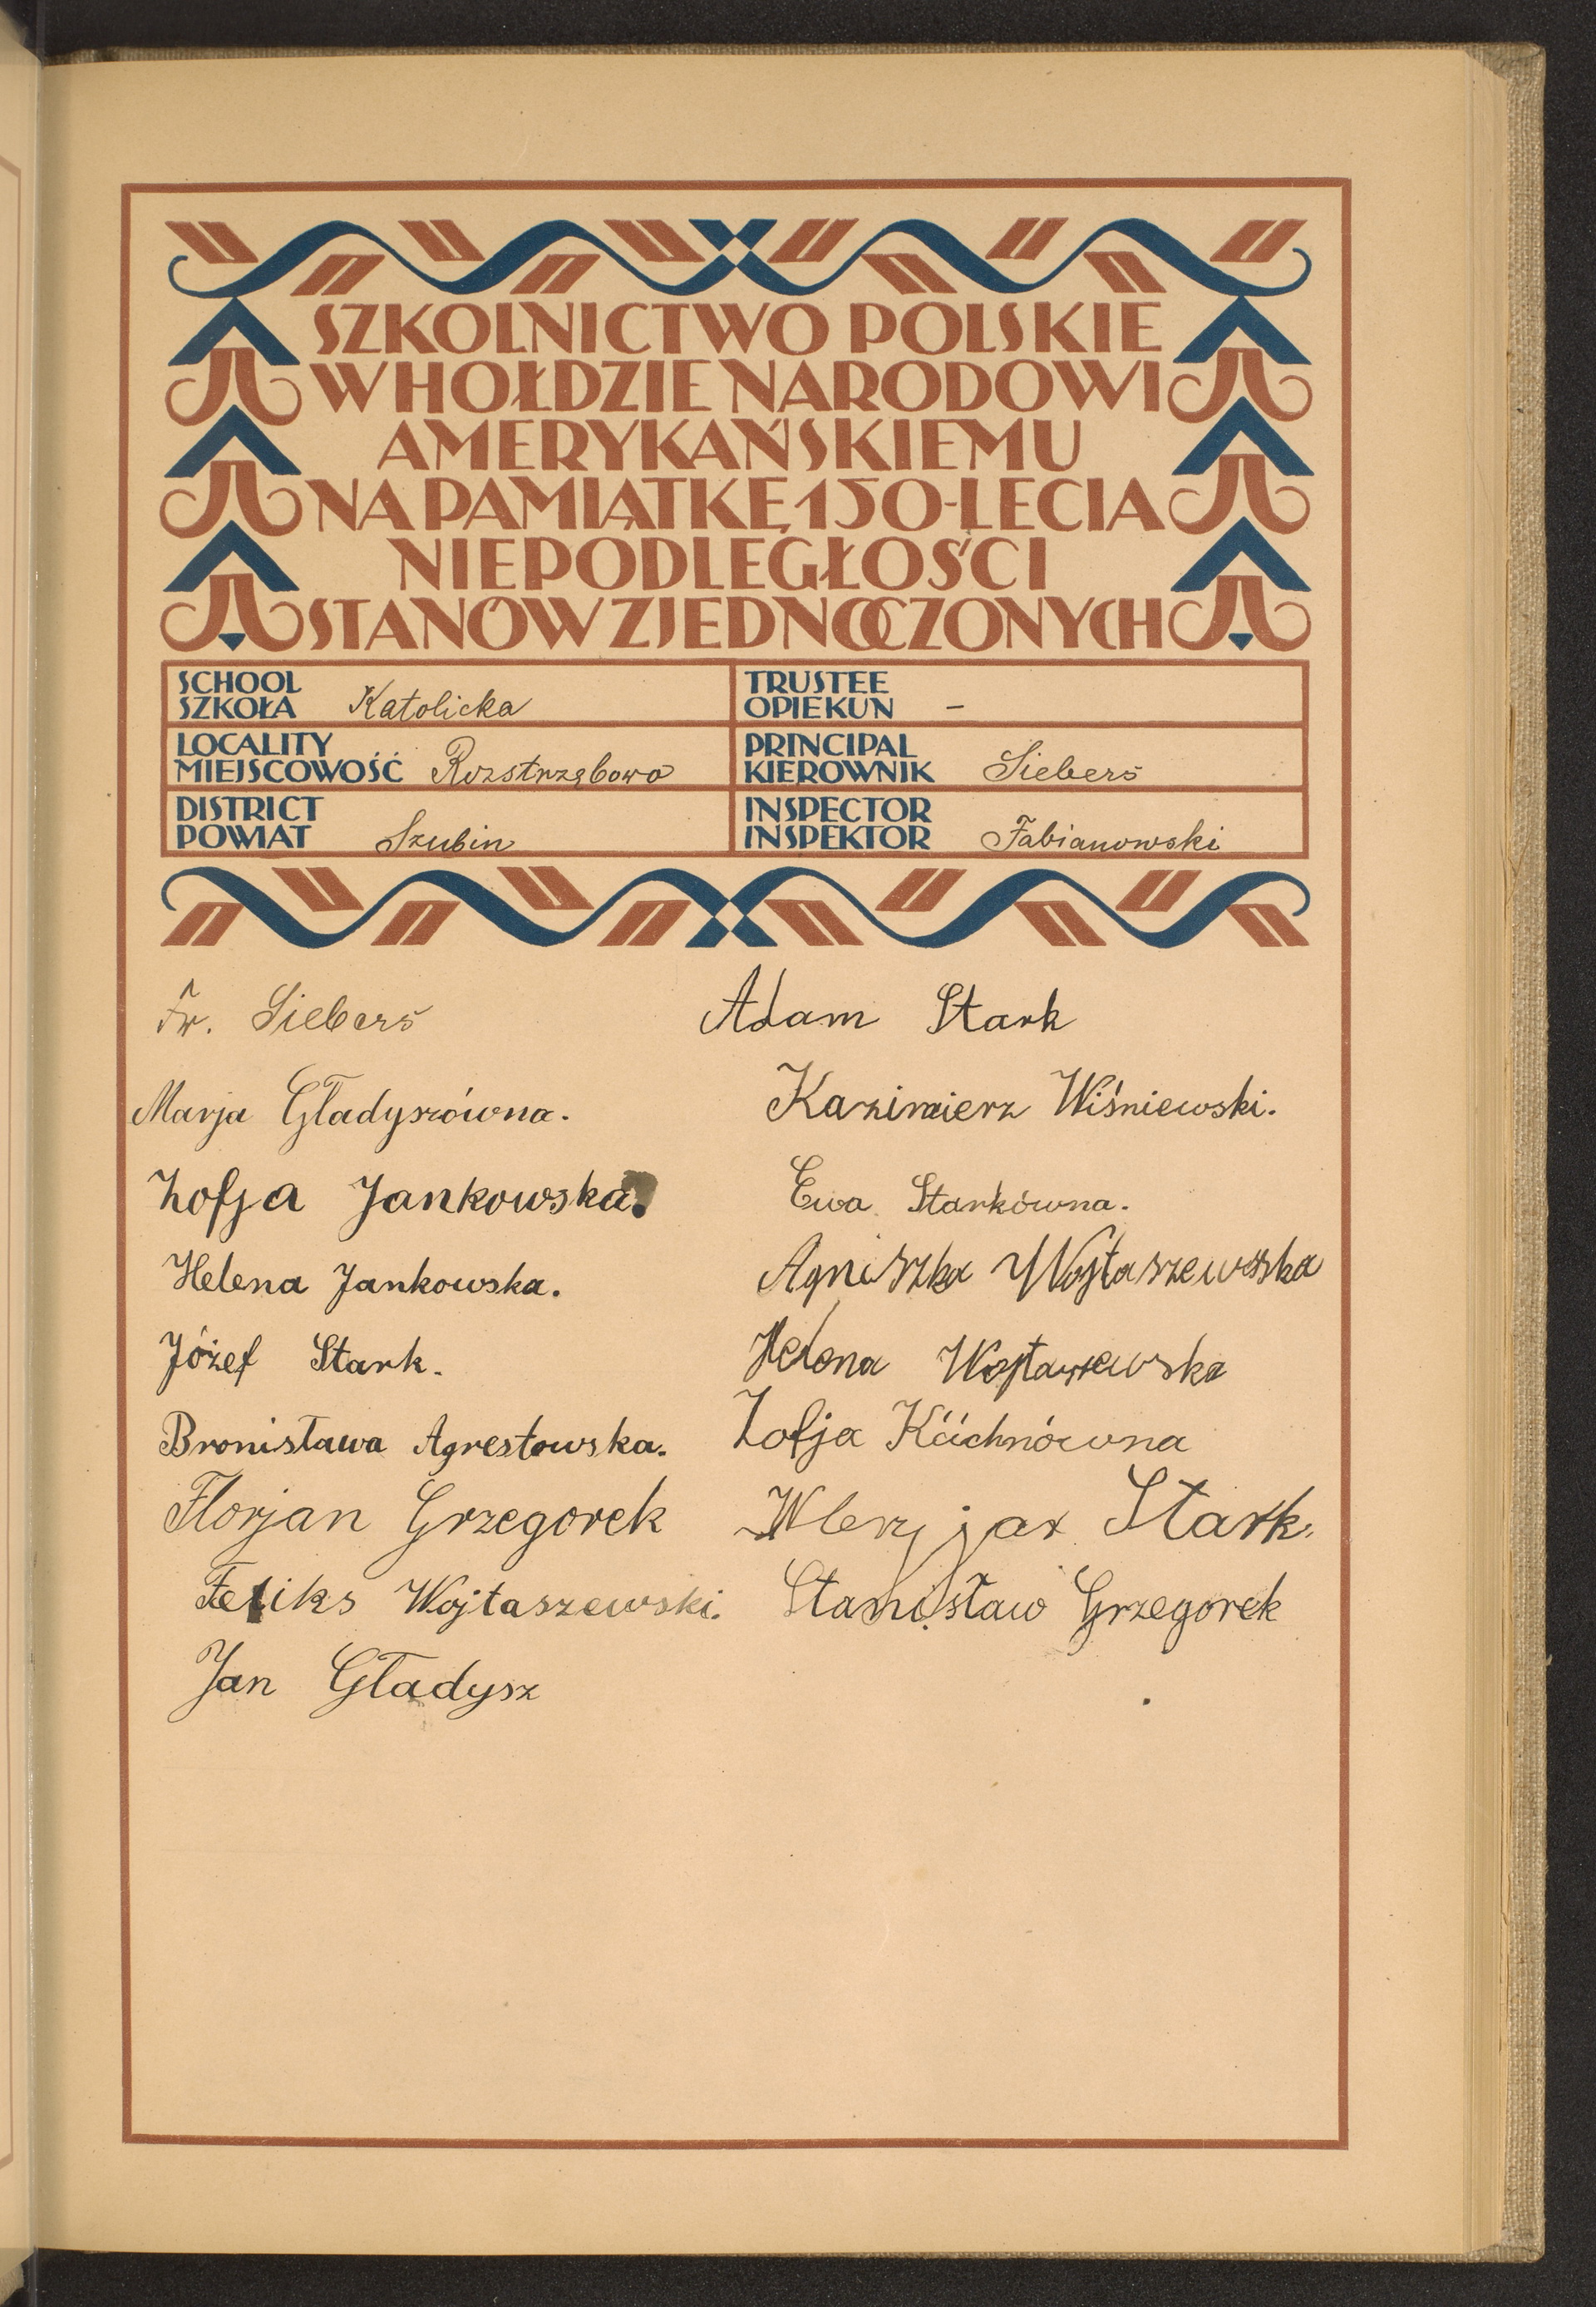 SZKOLNICTWO POLSKIE
W HOŁDZIE NARODOWI
AMERYKAŃSKIEMU
NA PAMIĄTKĘ 150-LECIA
NIEPODLEGŁOŚCI
STANÓW ZJEDNOCZONYCH
SCHOOL
SZKOŁA Katolicka
TRUSTEE
OPIEKUN –
LOCALITY
MIEJSCOWOŚĆ Rozstrzębowo
PRINCIPAL
KIEROWNIK Siebers
DISTRICT
POWIAT Szubin
INSPECTOR
INSPEKTOR Fabianowski
Fr. Siebers
Marja Gładyszówna.
Zofja Jankowska.
Helena Jankowska.
Józef Stark.
Bronisława Agrestowska.
Florjan Grzegorek
Feliks Wojtaszewski.
Jan Gładysz
Adam Stark
Kazimierz Wiśniewski.
Ewa Starkówna.
Agniszka Wojtaszewska
Helena Wojtaszewska
Zofja
Stark.
Stanisław Grzegorek